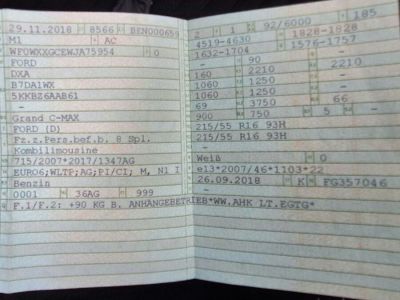 29.11.2018 8566 BEN000659
M1 AC
WF0WXXGCEWJA75954 0
FORD
DXA
B7DA1WX
5KKBZ6AAB61
-
Grand C-MAX
FORD (D)
Fz.z.Pers.bef.b. 8 Spl.
Kombilimousine
715/2007*2017/1347AG
EURO6;WLTP;AG;PI/CI; M, N1 I
Benzin
0001 36AG 999
F.1/F.2: +90 KG B. ANHÄNGEBETRIEB*WW.AHK LT.EGTG*
2 1 92/6000 185
4519-4630 1828-1828
1632-1704 1576-1757
- 90 -
160 2210 2210
1060 1250
1060 1250
69 3750 66
900 750 5 -
215/55 R16 93H
215/55 R16 93H
-
Weiß 0
e13*2007/46*1103*22
26.09.2018 K FG357046